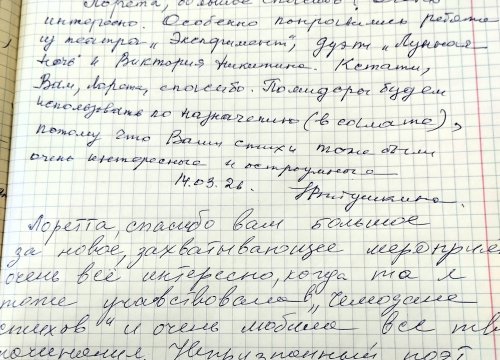 Лоретта, большое спасибо! Очень
интересно. Особенно понравились ребята
из театра „Эксперимент", дуэт „Лунная
ночь" и Виктория Никитина. Кстати,
Вам, Лорета, спасибо. Помидоры будем
использовать по назначению (в салата),
потому что Ваши стихи тоже были
очень интересного и остроумного
14.03.26.
Лоретта, спасибо вам большое
за новое, захватывающее меропри
очень всё интересно, когда та я
тоже учавствовала в „Чемодане
стихов" и очень любила все тв
сочинения. Непризнанный поэт